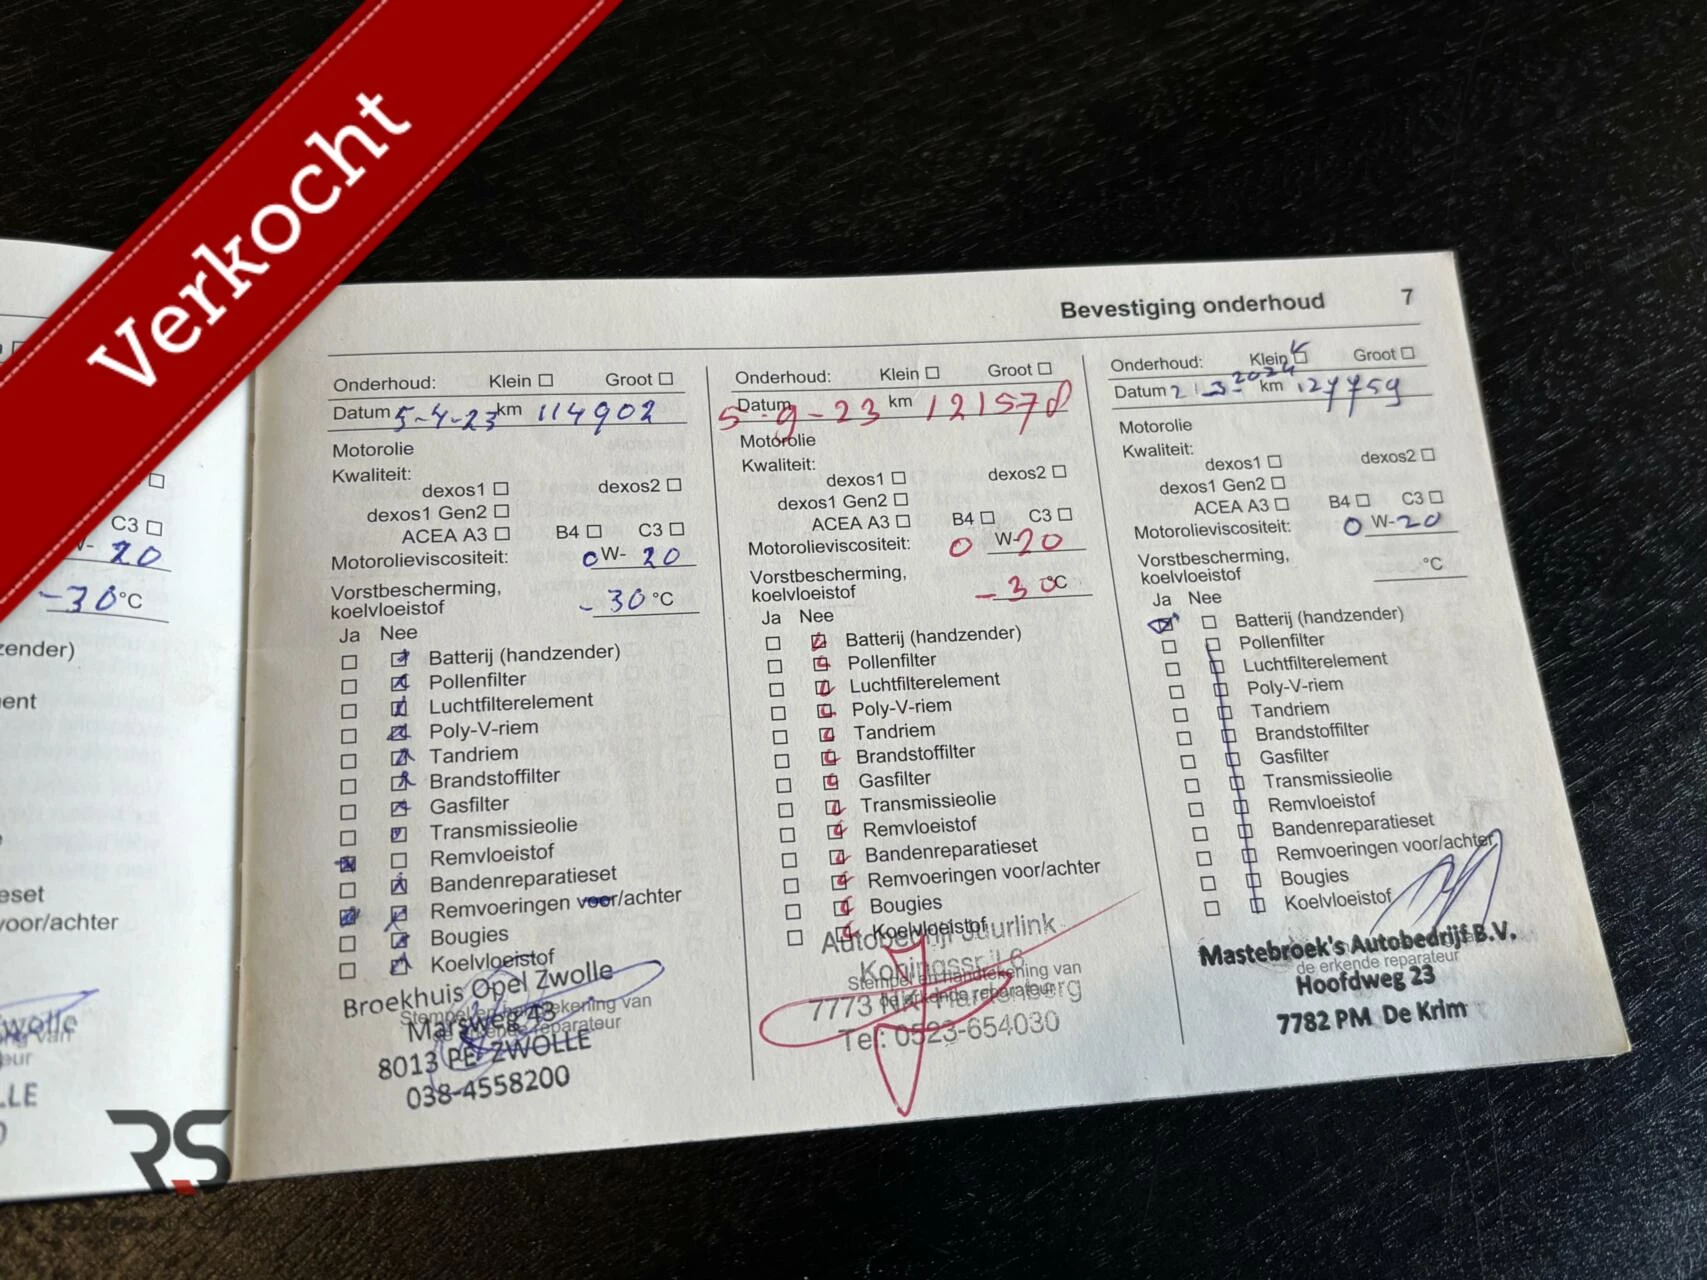 Verkocht
C3
W- 20
-30 °C
zender)
ent
eset
voor/achter
Bevestiging onderhoud 7
Onderhoud: Klein Groot
Datum 5-4-23 km 114902
Motorolie
Kwaliteit:
dexos1 dexos2
dexos1 Gen2
ACEA A3 B4 C3
Motorolieviscositeit: 0 W- 20
Vorstbescherming,
koelvloeistof -30 °C
Ja Nee
Batterij (handzender)
Pollenfilter
Luchtfilterelement
Poly-V-riem
Tandriem
Brandstoffilter
Gasfilter
Transmissieolie
Remvloeistof
Bandenreparatieset
Remvoeringen voor/achter
Bougies
Koelvloeistof
Broekhuis Opel Zwolle
Stempel en handtekening van
Marsweg 43
de erkende reparateur
8013 PE ZWOLLE
038-4558200
Onderhoud: Klein Groot
Datum 5-9-23 km 121570
Motorolie
Kwaliteit:
dexos1 dexos2
dexos1 Gen2
ACEA A3 B4 C3
Motorolieviscositeit: 0 W-20
Vorstbescherming,
koelvloeistof -30 °C
Ja Nee
Batterij (handzender)
Pollenfilter
Luchtfilterelement
Poly-V-riem
Tandriem
Brandstoffilter
Gasfilter
Transmissieolie
Remvloeistof
Bandenreparatieset
Remvoeringen voor/achter
Bougies
Koelvloeistof
Autobedrijf Juurlink
Stempel en handtekening van
de erkende reparateur
7773 Hardenberg
Tel: 0523-654030
Onderhoud: Klein Groot
Datum 2-3-2024 km 127759
Motorolie
Kwaliteit:
dexos1 dexos2
dexos1 Gen2
ACEA A3 B4 C3
Motorolieviscositeit: 0 W-20
Vorstbescherming,
koelvloeistof °C
Ja Nee
Batterij (handzender)
Pollenfilter
Luchtfilterelement
Poly-V-riem
Tandriem
Brandstoffilter
Gasfilter
Transmissieolie
Remvloeistof
Bandenreparatieset
Remvoeringen voor/achter
Bougies
Koelvloeistof
Mastebroek's Autobedrijf B.V.
de erkende reparateur
Hoofdweg 23
7782 PM De Krim
RS